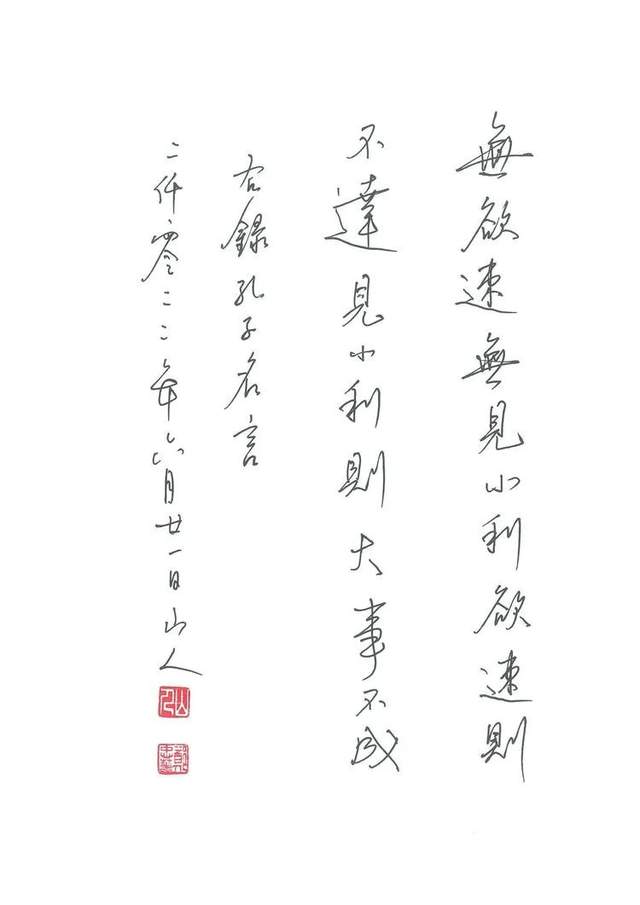 無欲速無見小利欲速則
不達見小利則大事不成
右錄孔子名言
二仟零二二年六月廿一日山人